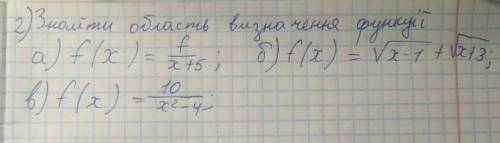 2) Знайти область визначення функції
а) f(x) = f/(x+5); б) f(x) = √(x-1) + √(x+3);
в) f(x) = 10/(x²-4);